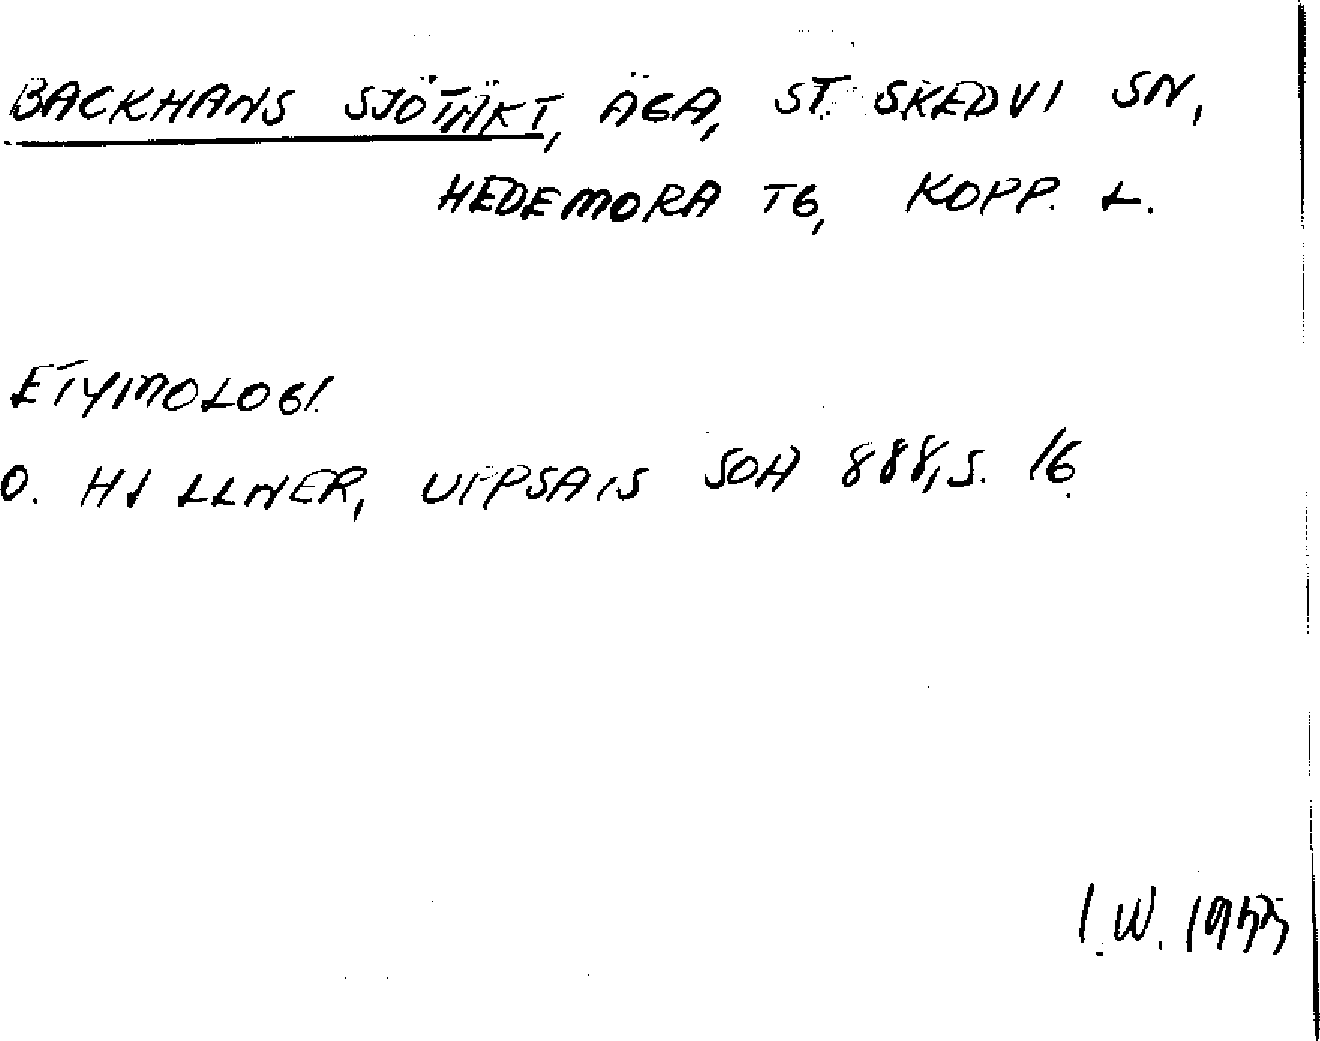 BACKHANS SJÖTÄKT, ÄGA, ST. SKEDVI SN,
HEDEMORA TG, KOPP. L.
ETYMOLOGI.
O. HILLNER, UPPSATS SOA 888, S. 16.
I.W. 1977